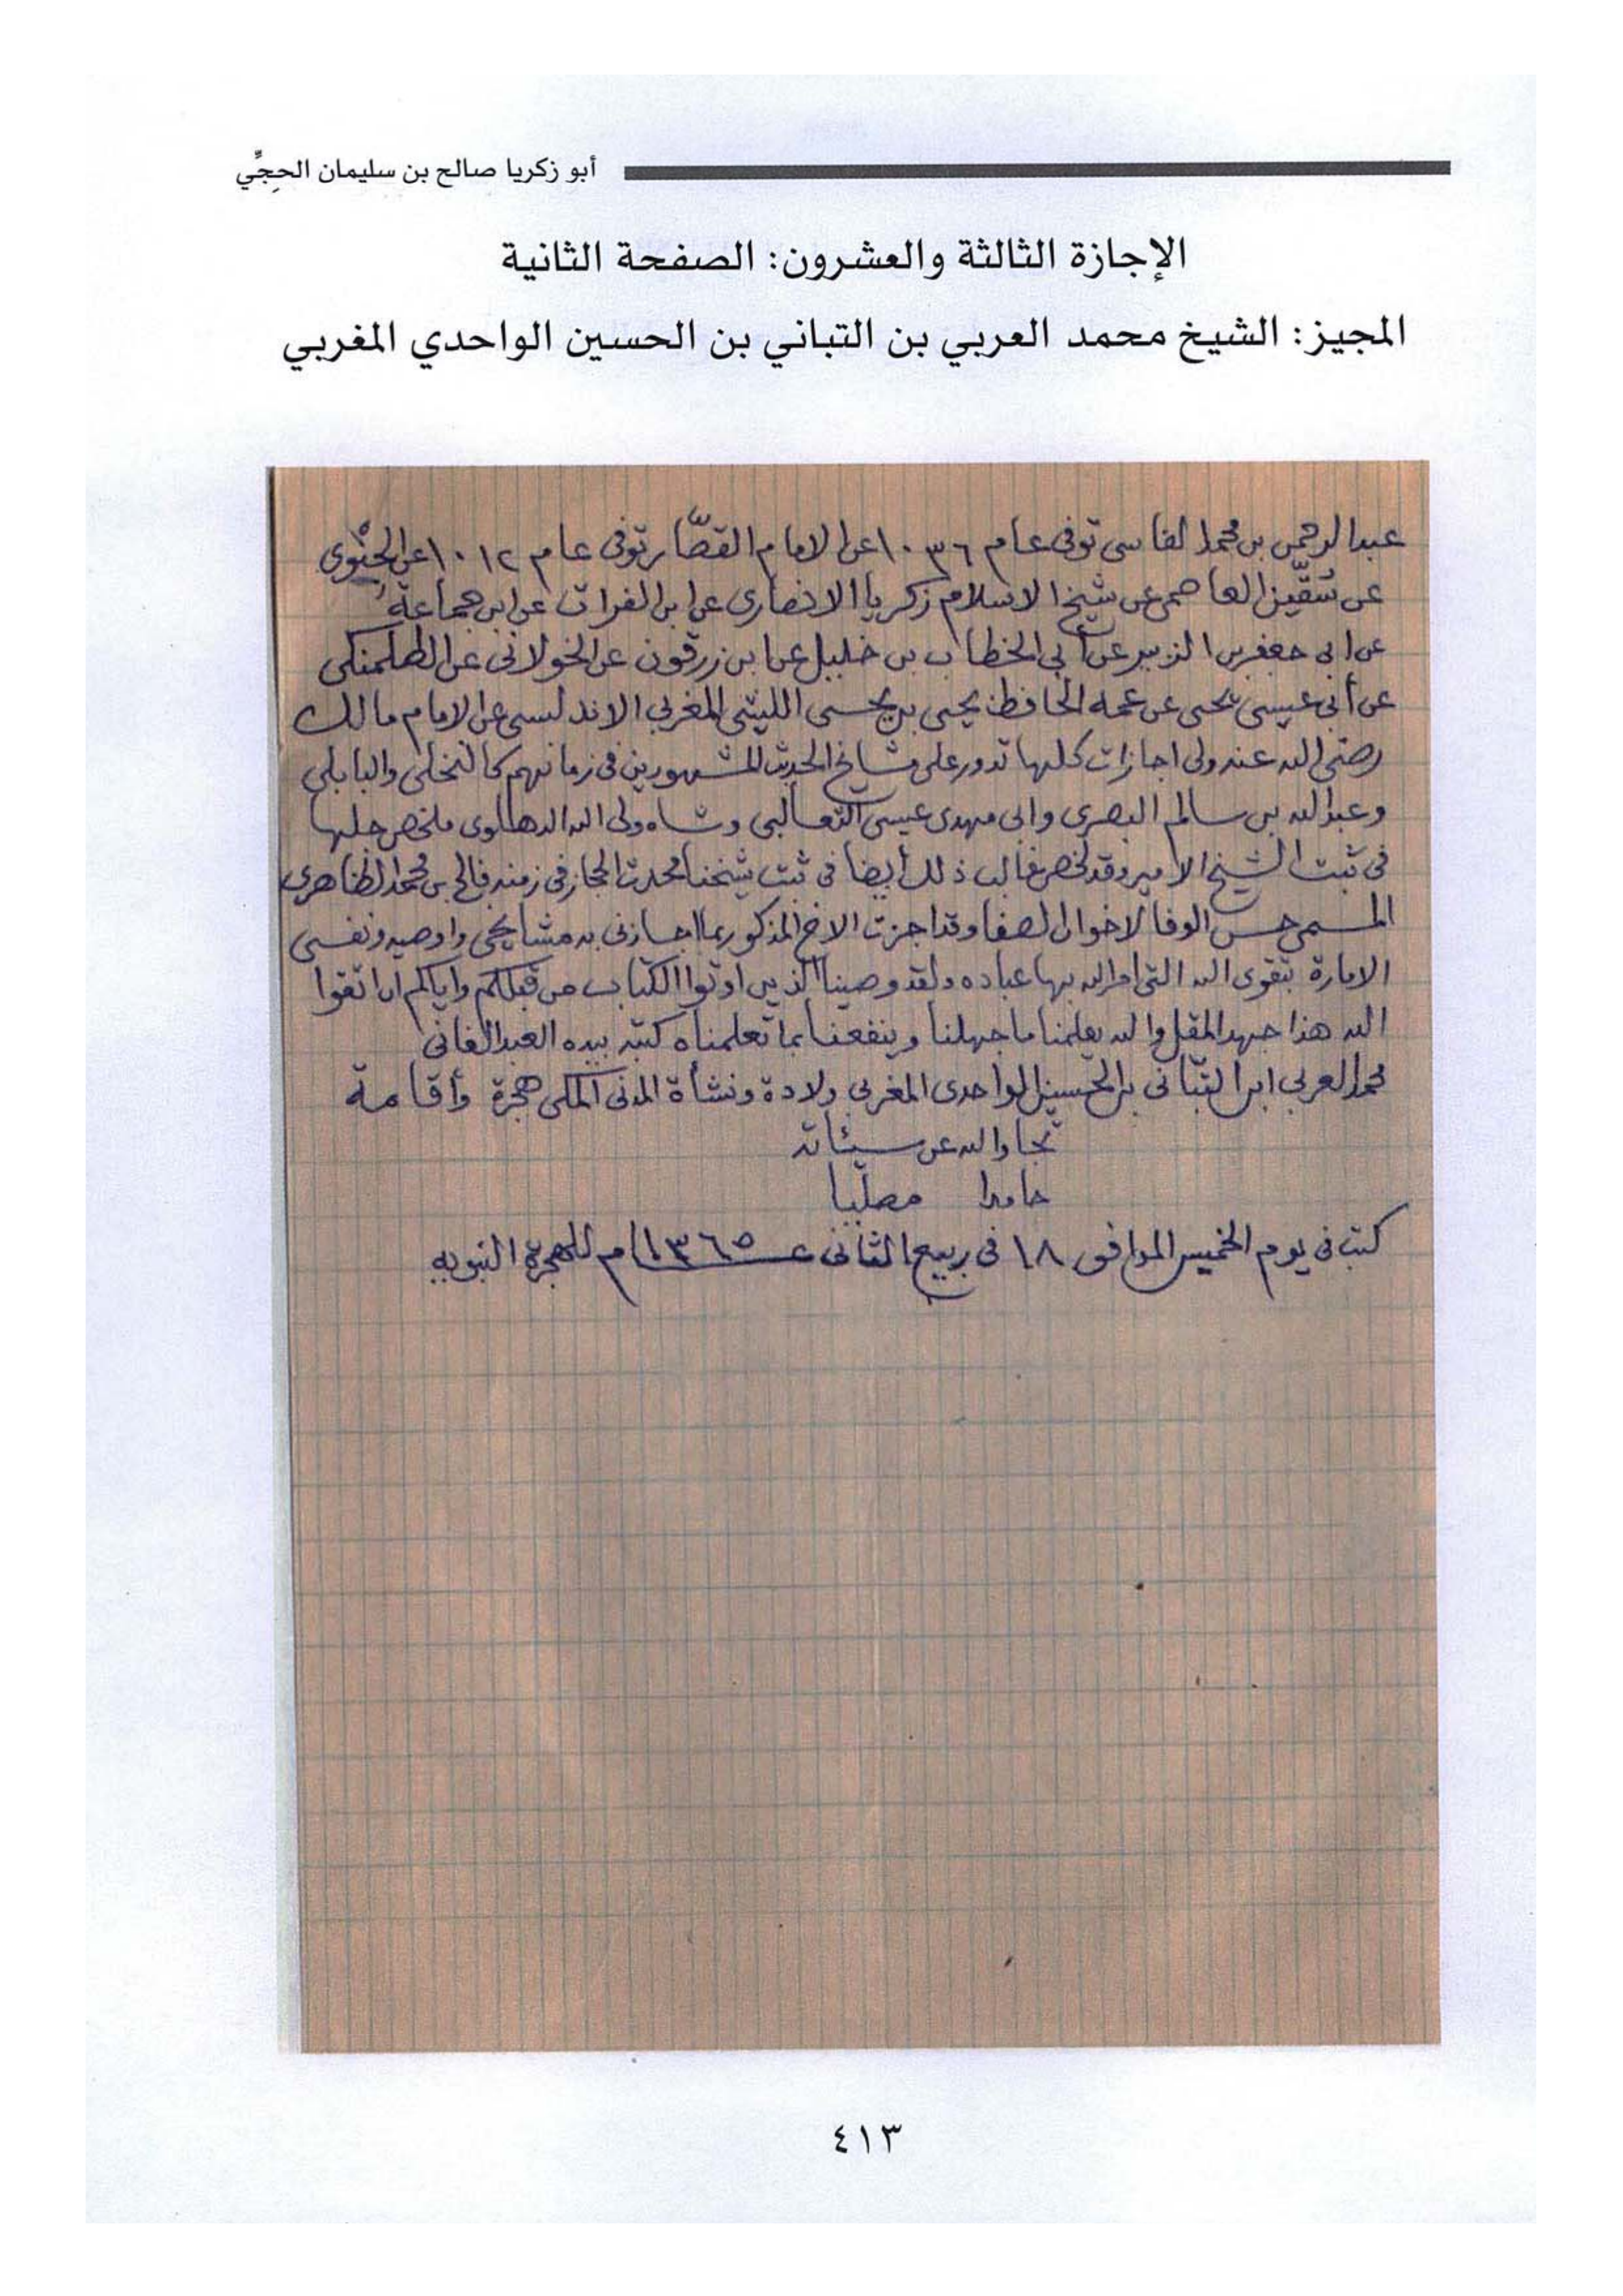 أبو زكريا صالح بن سليمان الحجِّي
الإجازة الثالثة والعشرون: الصفحة الثانية
المجيز: الشيخ محمد العربي بن التباني بن الحسين الواحدي المغربي
عبد الرحمن بن محمد الفاسى توفى عام ١٠٣٦ عن الامام القصّار توفى عام ١٠١٢ عن
عن سُقّين العاصمى عن شيخ الاسلام زكريا الانصارى عن ابن الفرات عن ابن جماعة
عن ابى جعفر بن الزبير عن أبى الخطاب بن خليل عن ابن زرقون عن الخولانى عن الطلمنكى
عن أبى عيسى يحيى عن عمه الحافظ يحيى بن يحيى الليثى المغربى الاندلسى عن الامام مالك
رضى الله عنه ولى اجازات كلها تدور على مشايخ الحديث المشهورين فى زمانهم كالنخلى والبابلى
وعبد الله بن سالم البصرى وابى مهدى عيسى الثعالبى وشاه ولى الله الدهلوى ملخص جلها
فى ثبت الشيخ الامير وقد لخص غالب ذلك أيضا فى ثبت شيخنا محدث الحجاز فى زمنه فالح بن محمد الظاهرى
المسمى حسن الوفا لاخوان الصفا وقد اجزت الاخ المذكور بما اجازنى به مشايخى واوصيه ونفسى
الامارة بتقوى الله التى امر الله بها عباده ولقد وصينا الذين اوتوا الكتاب من قبلكم واياكم ان اتقوا
الله هذا جهد المقل والله يعلمنا ما جهلنا وينفعنا بما تعلمناه كتبه بيده العبد الفانى
محمد العربى ابن التبّانى بن الحسين الواحدى المغربى ولادة ونشأة المدنى المكى هجرة وأقامة
تجاوز الله عن سيئاته
حامدا مصليا
كتب فى يوم الخميس الموافق ١٨ فى ربيع الثانى عـــ١٣٦٥ــام للهجرة النبويه
٤١٣